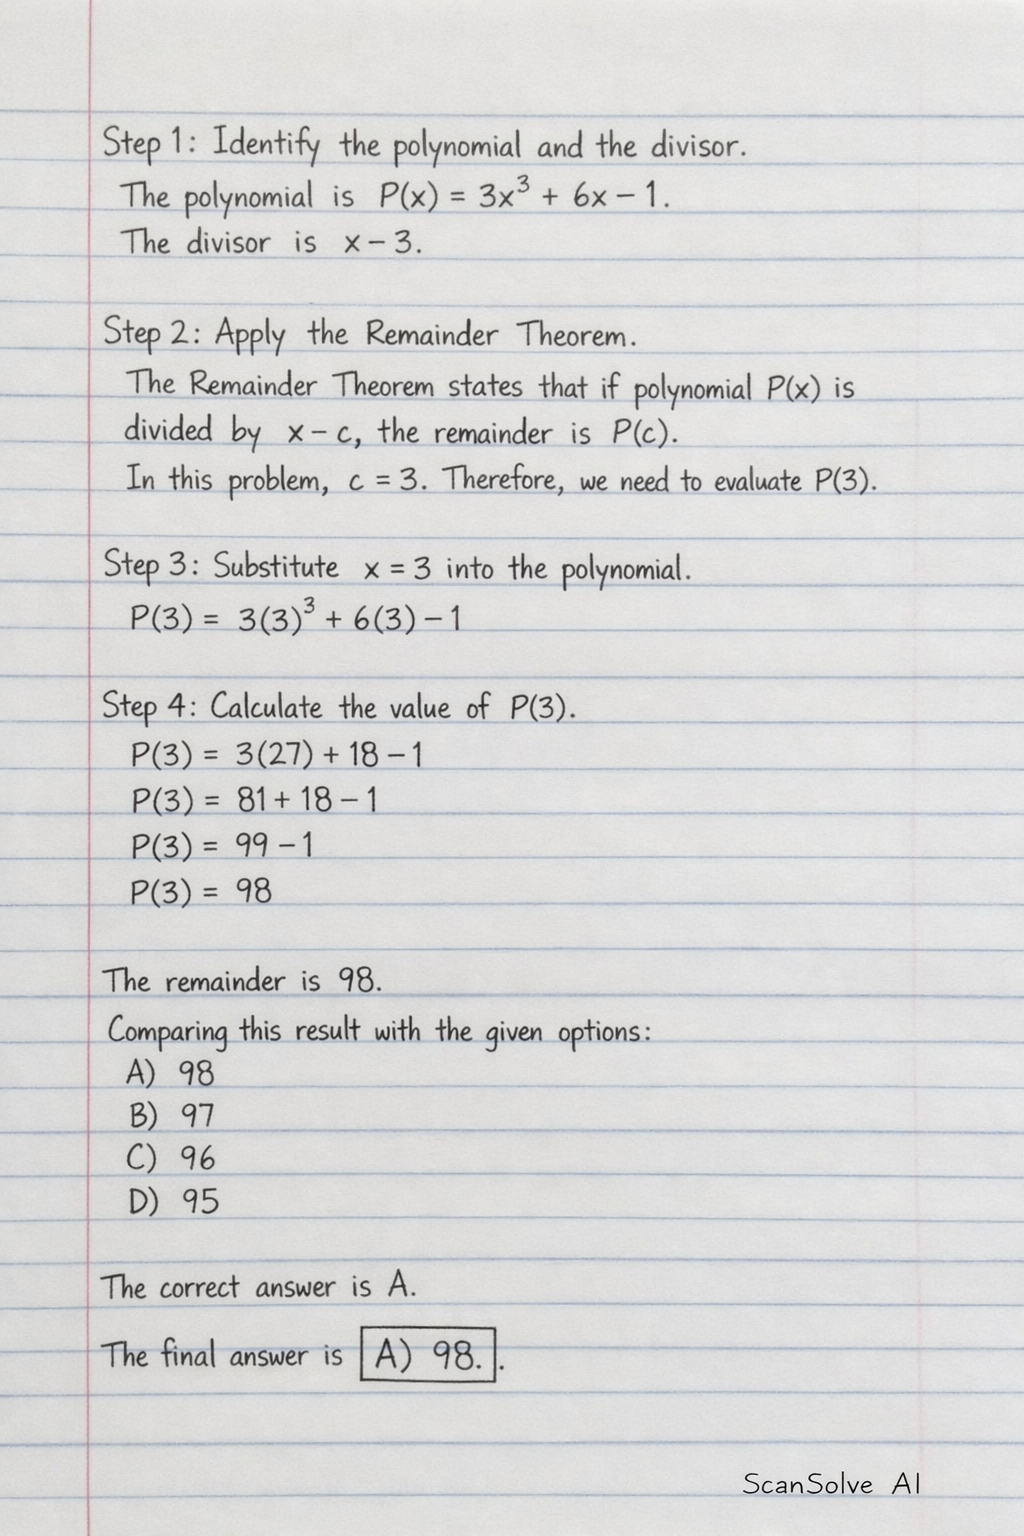 Step 1: Identify the polynomial and the divisor.
The polynomial is P(x) = 3x³ + 6x − 1.
The divisor is x − 3.
Step 2: Apply the Remainder Theorem.
The Remainder Theorem states that if polynomial P(x) is
divided by x − c, the remainder is P(c).
In this problem, c = 3. Therefore, we need to evaluate P(3).
Step 3: Substitute x = 3 into the polynomial.
P(3) = 3(3)³ + 6(3) − 1
Step 4: Calculate the value of P(3).
P(3) = 3(27) + 18 − 1
P(3) = 81 + 18 − 1
P(3) = 99 − 1
P(3) = 98
The remainder is 98.
Comparing this result with the given options:
A) 98
B) 97
C) 96
D) 95
The correct answer is A.
The final answer is A) 98. .
ScanSolve AI